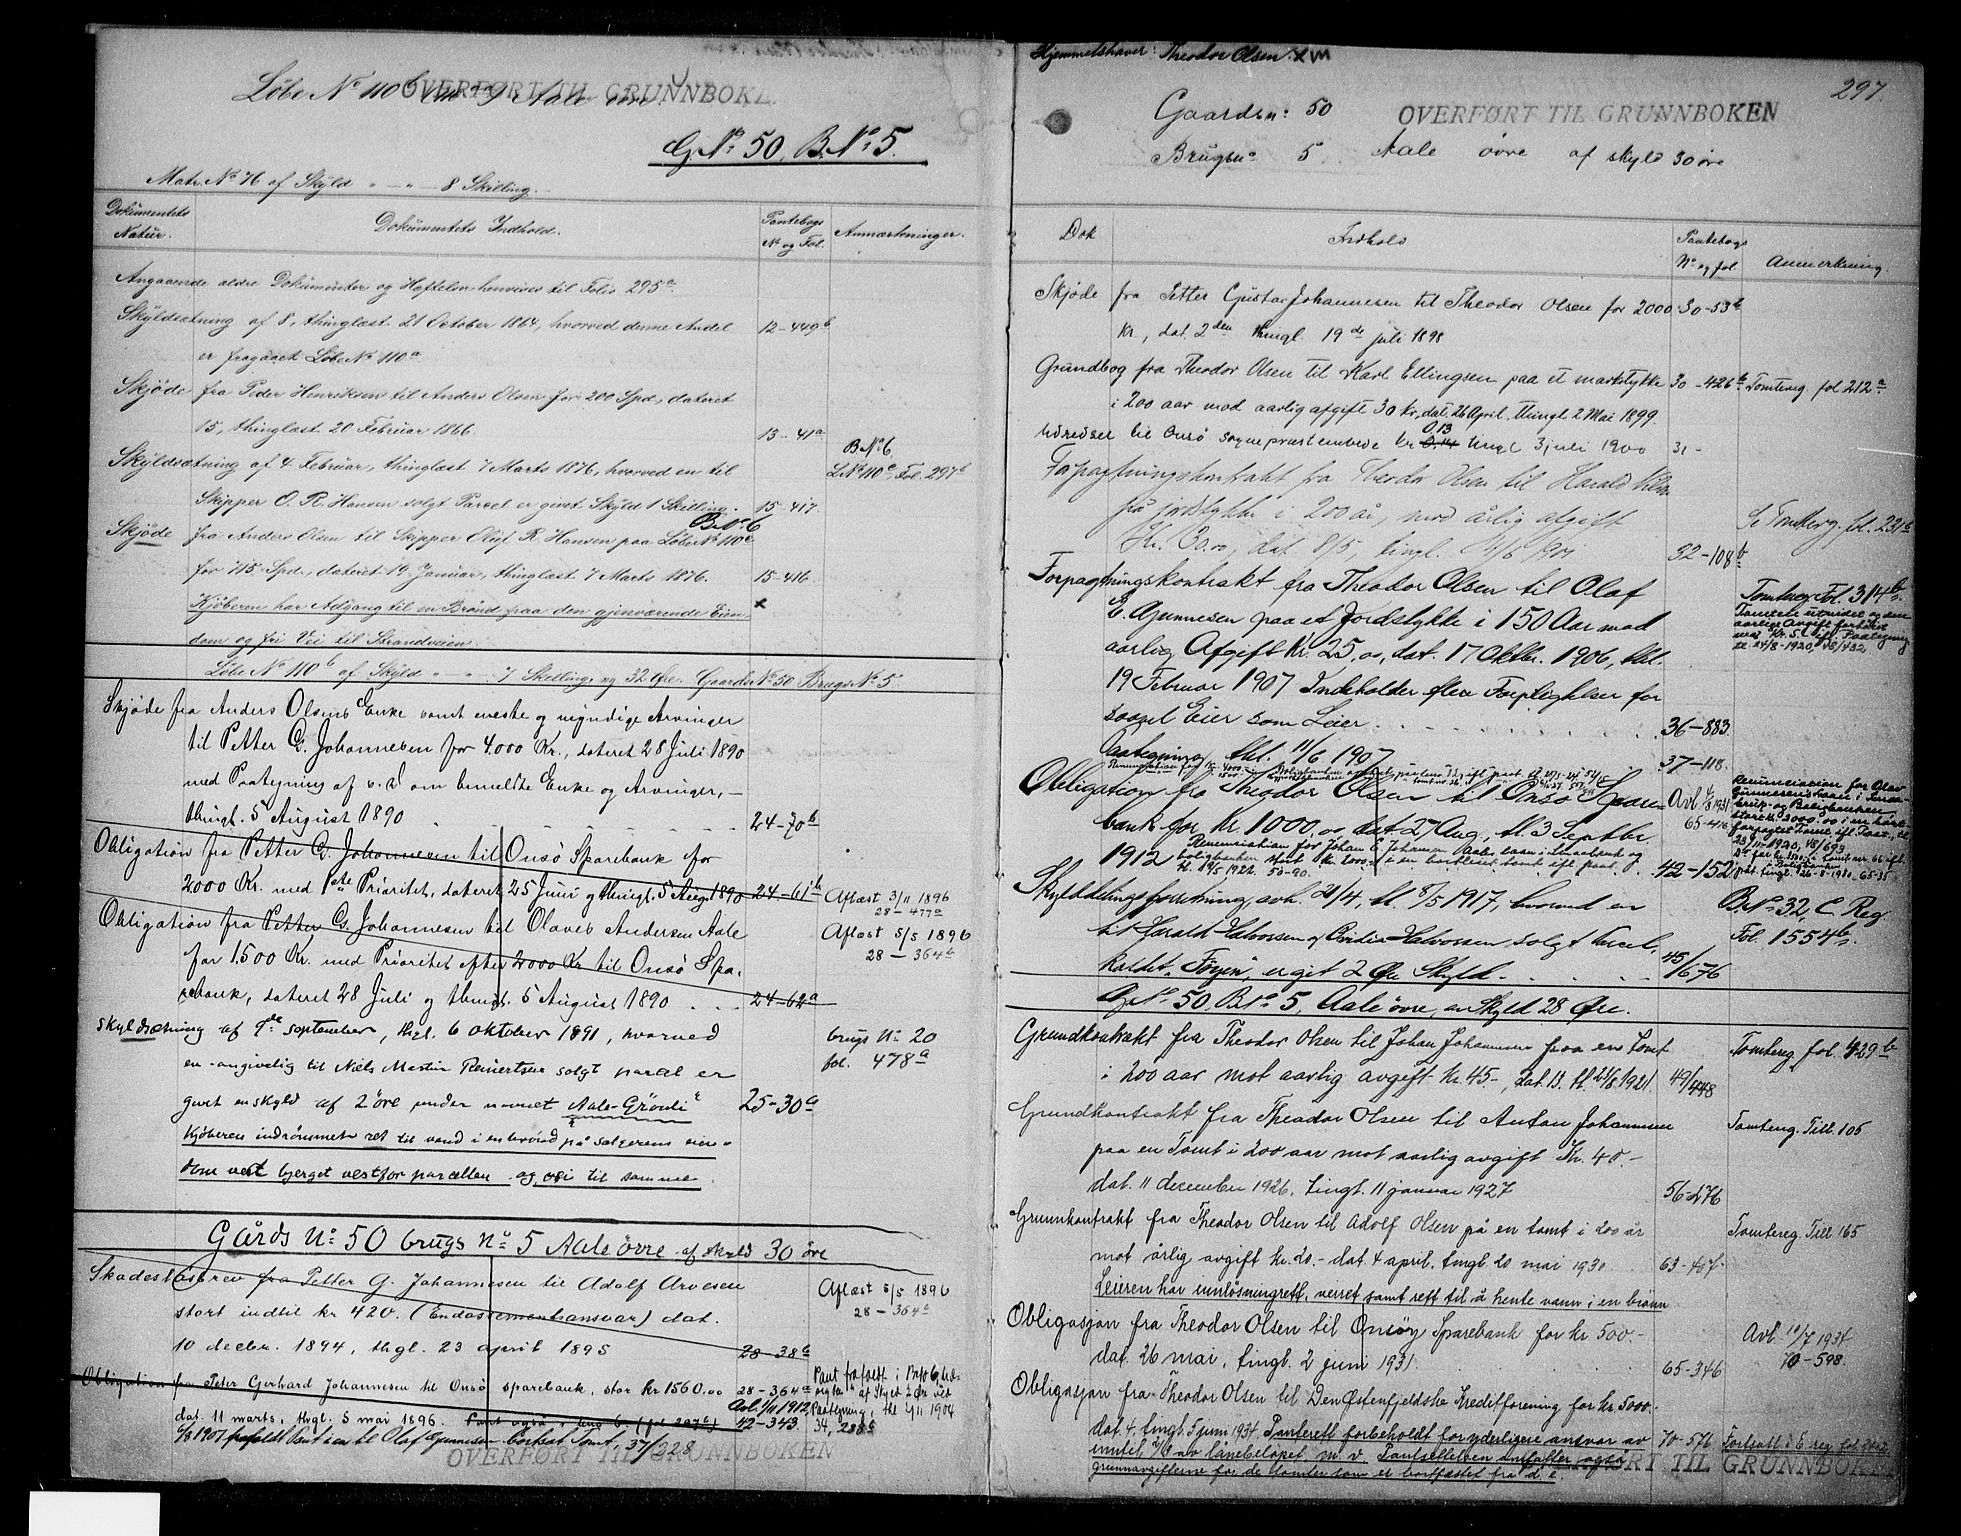 Løbe No 110 b Aale øvre.
OVERFØRT TIL GRUNNBOKEN
G.No. 50, B.No. 5.
Matr. No 76 af Skyld " — " — 8 Skilling.
Dokumentets Natur. Dokumentets Indhold. Pantebogs No og Fol. Anmærkninger.
Angaaende ældre Dokumenter og Heftelser henvises til Folio 295a.
Skyldsætning af 8, thinglæst 21 October 1864, hvorved denne Andel 12-449b
er fragaaet Løbe No 110a
Skjøde fra Peder Henriksen til Anders Olsen for 200 Spd, dateret
15, thinglæst 20 Februar 1866. 13-41a
B.No 6
Skyldsætning af 4 Februar, thinglæst 7 Marts 1876, hvorved en til L.No 110c, Fol. 297b
Skipper O. R. Hansen solgt Parcel er givet Skyld 1 Skilling. 15-417.
B.No. 6
Skjøde fra Anders Olsen til Skipper Oluf R. Hansen paa Løbe No 110c
for 715 Spd, dateret 19 Januar, thinglæst 7 Marts 1876. 15-416.
Kjøberen har Adgang til en Brønd paa den gjenværende Eien- x
dom og fri Vei til Strandveien.
Løbe No 110b af Skyld " — " 7 Skilling, ny 32 Øre. Gaards No 50. Brugs No 5.
Skjøde fra Anders Olsens Enke samt eneste og myndige Arvinger
til Petter G. Johannesen for 4.000 Kr., dateret 28 Juli 1890
med Paategning af s. D. om bemeldte Enke og Arvinger, —
thingl. 5 August 1890 24-70b
Obligation fra Petter G. Johannesen til Onsø Sparebank for
2000 Kr. med 1ste Prioritet, dateret 25 Juni og thingl. 5 Aug. 1890 24-61b Aflæst 3/11 1896
28-477a
Obligation fra Petter G. Johannesen til Olaves Andersen Aale Aflæst 5/5 1896
for 1.500 Kr. med Prioritet efter 2000 Kr til Onsø Spa- 28-364b
rebank, dateret 28 Juli og thingl. 5 August 1890 24-62a
Skyldsætning af 9de september, thgl. 6 oktober 1891, hvorved brugs No 20
en angivelig til Niels Martin Reinertsen solgt parcel er fol. 478a
givet en skyld af 2 øre under navnet Aale-Grønli 25-30a
Kjøberen indrømmet ret til vand i en brønd på sælgerens eien-
dom ved bjerget vestfor parcellen og vei til samme.
Gårds No 50 brugs No 5 Aale øvre af skyld 30 øre
Skadesløsbrev fra Petter G. Johannesen til Adolf Arvesen Aflæst 5/5 1896
stort indtil kr 420. (Endossementsansvar) dat. 28-364a
10 decbr. 1894, thgl. 23 april 1895 28-38b
Obligation fra Peter Gerhard Johannesen til Onsø sparebank, stor kr 1560.00 28-364a
dat. 11 marts, thgl. 5 mai 1896. Avl. 1/11 1912, 42-343.
OVERFØRT TIL GRUNNBOKEN
Hjemmelshaver: Theodor Olsen.
297.
Gaardsn: 50 OVERFØRT TIL GRUNNBOKEN
Brugsno 5 Aale øvre af skyld 30 øre
Dok Indhold Pantebogs No og fol Anmerkning.
Skjøde fra Petter Gustav Johannesen til Theodor Olsen for 2000 30-53b
kr, dat. 2den thingl. 19de juli 1898
Grundbog fra Theodor Olsen til Karl Ellingsen paa et markstykke 30-426b Tomtereg fol 212a
i 200 aar mod aarlig afgift 30 kr, dat. 26 April, thingl 2 Mai 1899.
Udredsel til Onsø sognepræstembede kr 0.13 tingl 3 juli 1900 31-
Forpagtningskontrakt fra Theodor Olsen til Harald
på jordstykke i 200 år, mod årlig afgift Se Tomtereg. fol. 231b
Kr. 30.00, dat. 8/5, tingl. 32-108b
Forpagtningskontrakt fra Theodor Olsen til Olaf Tomtereg Fol. 314b.
Gunnesen paa et Jordstykke i 150 Aar mod
aarlig Afgift Kr. 25,00, dat. 17 Oktbr. 1906, thl.
19 Februar 1907 Indeholder flere Forpligtelser for
saavel Eier som Leier 36-883.
Paategning thl. 11/6 1907 37-118.
Obligation fra Theodor Olsen til Onsø Spare-
bank for Kr. 1000,00, dat. 27 Aug., tl. 3 Septbr
1912 42-152
Skylddelingsforretning, avh. 21/4, tl. 8/5 1917, hvorved en B.No 32, C. Reg
til Harald Halvorsen og Halvorsen solgt Parcel, Fol. 1554b.
kaldet "Tøyen", er git 2 Øre Skyld 45/676
G.No. 50, B.No. 5, Aale øvre, av Skyld 28 Øre.
Grundkontrakt fra Theodor Olsen til Johan Johannesen paa en Tomt Tomtereg fol 429b
i 200 aar mot aarlig avgift kr. 45.-, dat. 13. tl. 21/6 1921 49/448
Grundkontrakt fra Theodor Olsen til Anton Johannesen Tomtereg. Till. 105
paa en Tomt i 200 aar mot aarlig avgift Kr. 40.-
dat. 11 december 1926, tingl. 11 januar 1927 56-276
Grunnkontrakt fra Theodor Olsen til Adolf Olsen på en tomt i 200 år Tomtereg. Till 165
mot årlig avgift kr. 20.- dat 4 april, tingl. 20 mai 1930. 63-407.
Leieren har innløsningrett, veiret samt rett til å hente vann i en brønn
Obligasjon fra Theodor Olsen til Onsøy Sparebank for kr. 500.- Avl. 10/7 1934
dat. 26 mai, tingl. 2 juni 1931. 65-346 70-598.
Obligasjon fra Theodor Olsen til Den Østenfjeldske Kreditforening for kr. 5000.-
dat. 4. tingl. 5 juni 1934. Panterett forbeholdt for yderligere ansvar av 70-576
inntil 2/10 av lånebeløpet m. v. Pantsettelsen omfatter også
grunnavgiftene for de tomter som er bortfæstet fra d. e.
OVERFØRT TIL GRUNNBOKEN